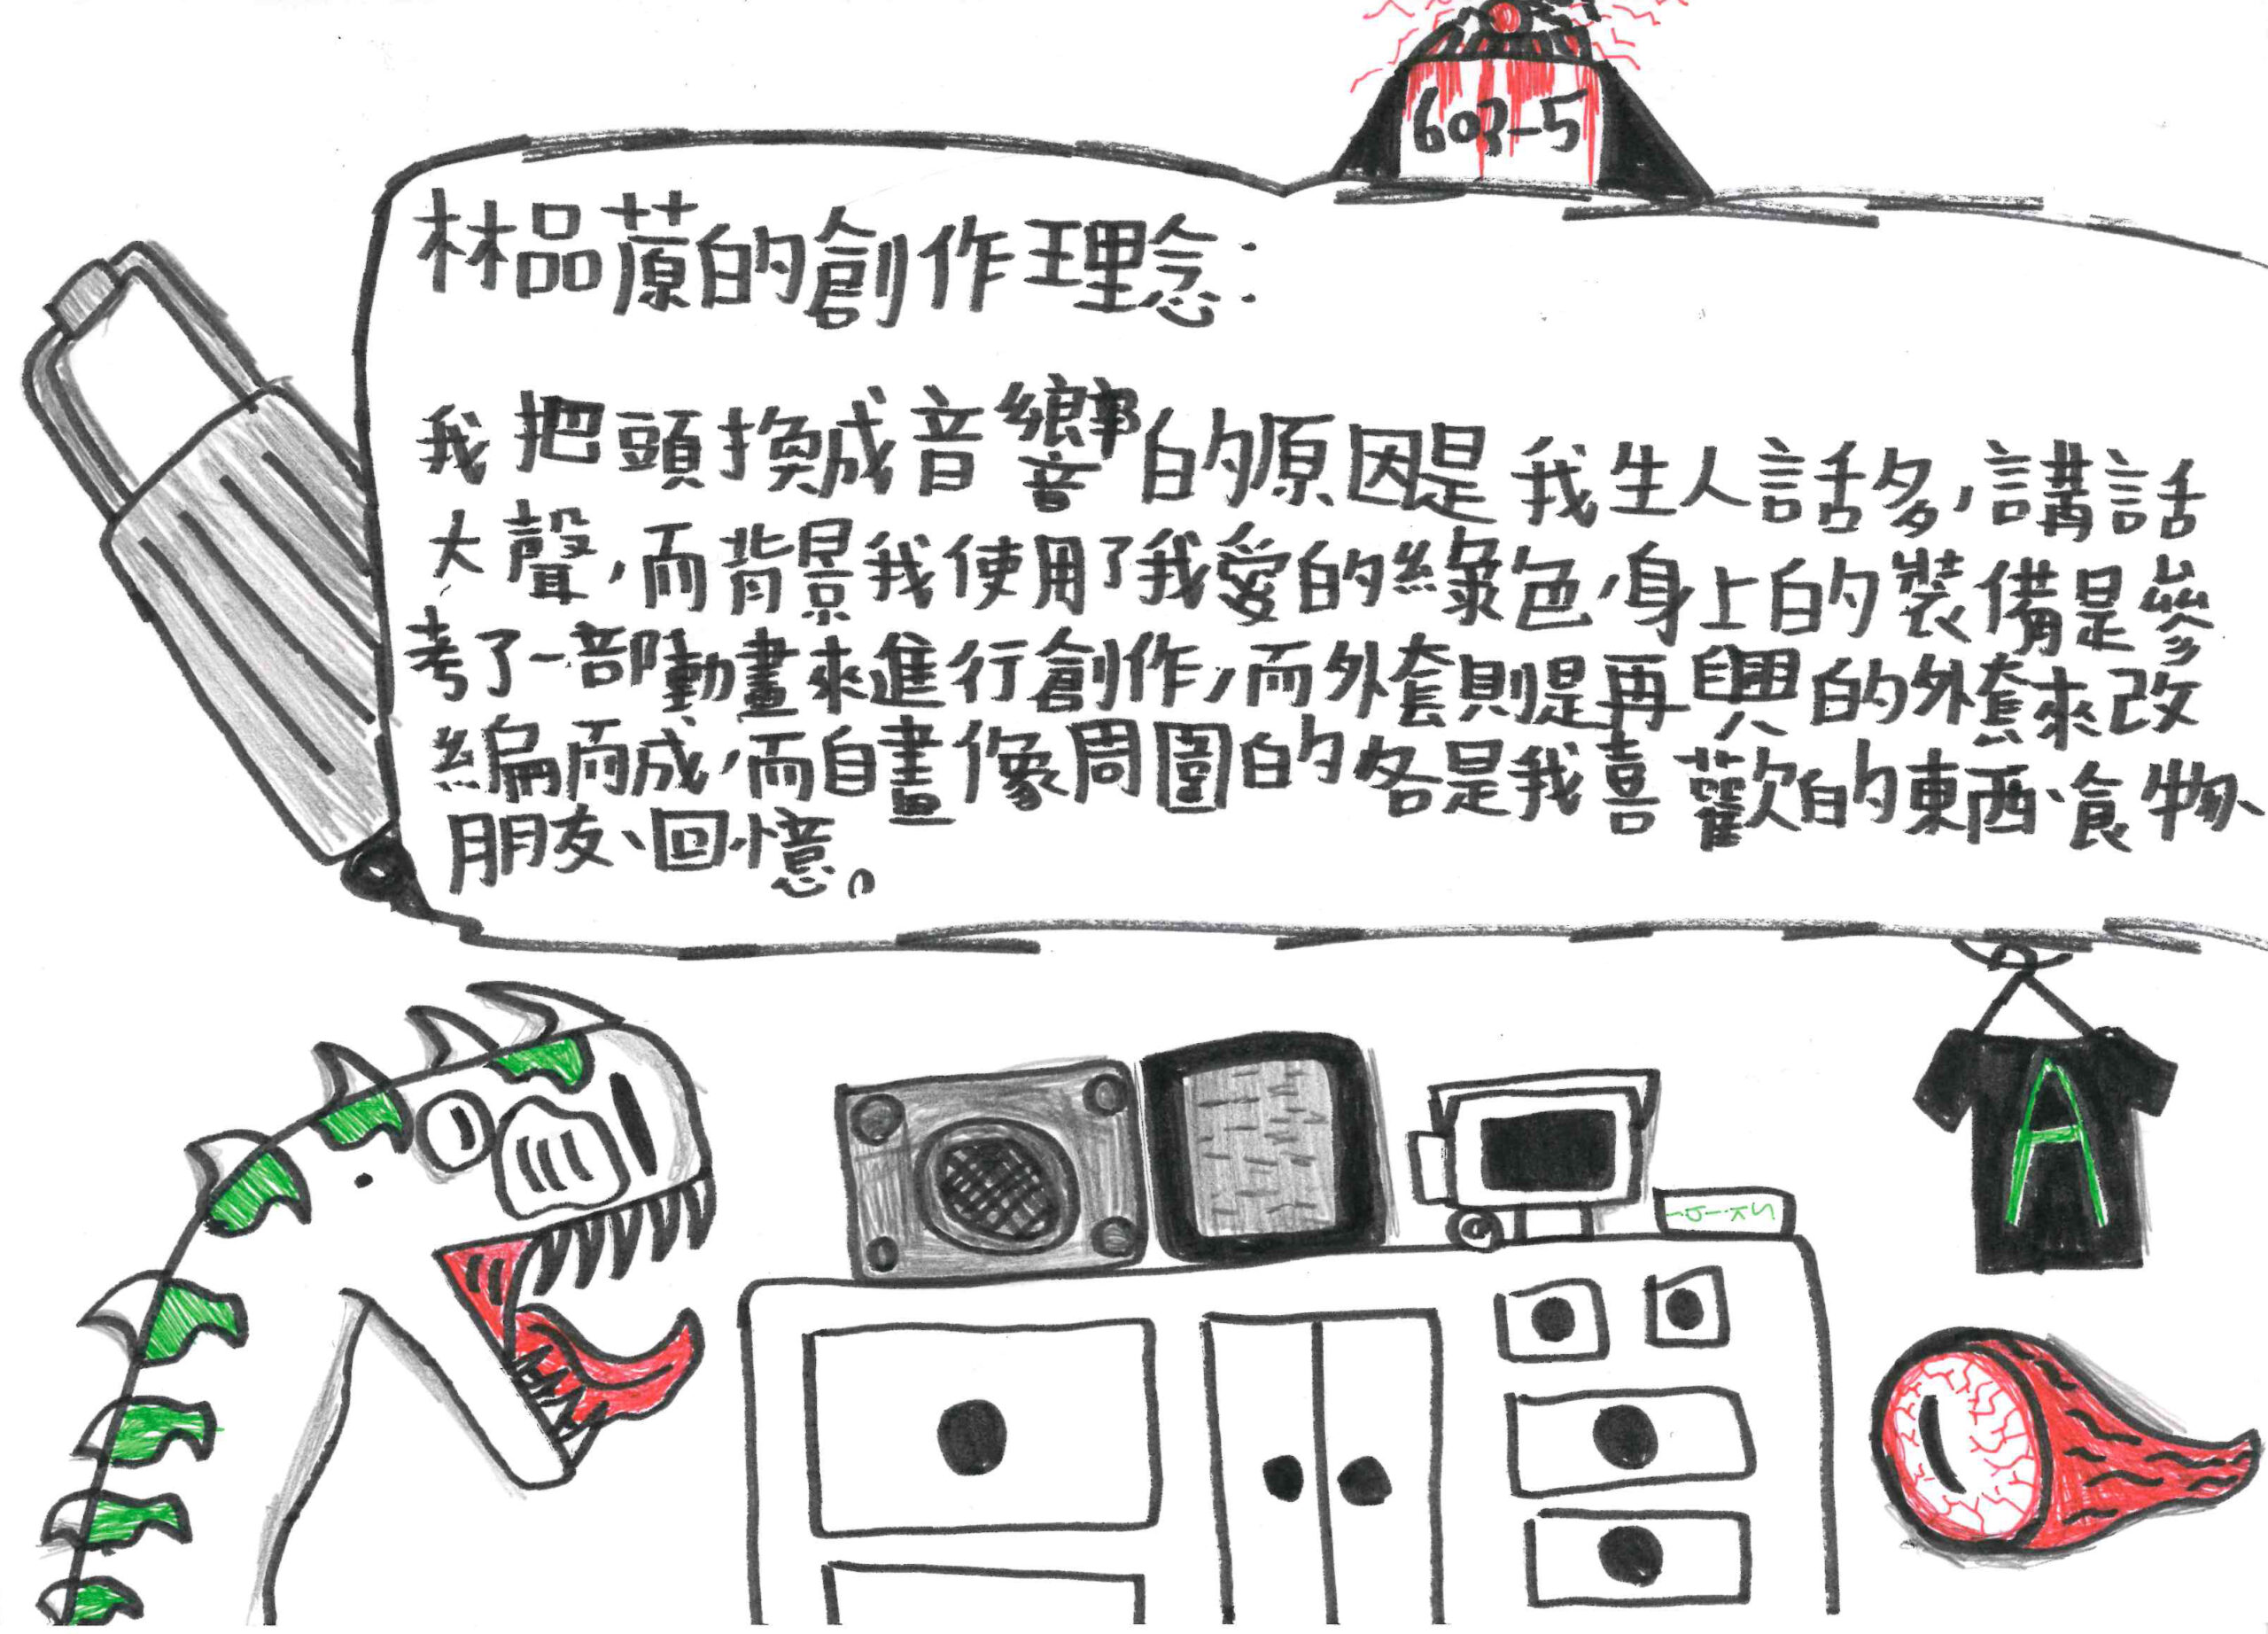 603-5
林品蒝的創作理念：
我把頭換成音響的原因是我生人話多，講話
大聲，而背景我使用了我愛的綠色，身上的裝備是參
考了一部動畫來進行創作，而外套則是再興的外套來改
編而成，而自畫像周圍的各是我喜歡的東西、食物、
朋友、回憶。
A